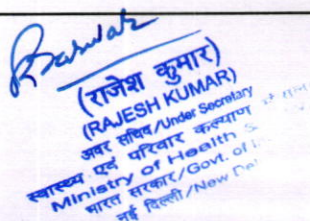 (राजेश कुमार)
(RAJESH KUMAR)
अवर सचिव/Under Secretary
स्वास्थ्य एवं परिवार कल्याण
Ministry of Health
भारत सरकार/Govt. of
नई दिल्ली/New